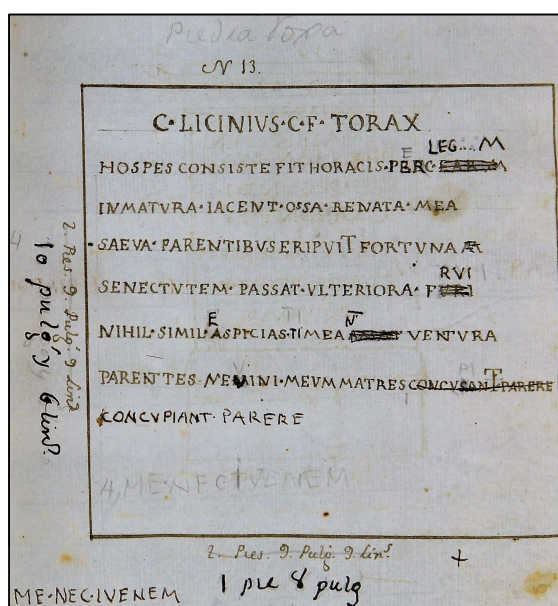 Piedra Roxa
N 13.
C·LICINIVS·C·F·TORAX
LEG... M
HOSPES CONSISTE FIT HORACIS·PERC
INMATVRA·IACENT·OSSA·RENATA·MEA
SAEVA·PARENTIBVS ERIPVIT FORTVNA
RVI
SENECTVTEM·PASSAT·VLTERIORA·F
E TI N
NIHIL·SIMIL·ASPICIAS·TIMEA VENTVRA
PARENTTES·NEMINI·MEVM MATRES CONCVSANT PARERE
CONCVPIANT·PARERE
ME·NEC IVENEM
2. Pies. 9. Pulg. 9. lin.s
1 pie 8 pulg
ME·NEC·IVENEM
2. Pies. 9. Pulg. 9. lin.s
10 pulg. y 6 lin.s